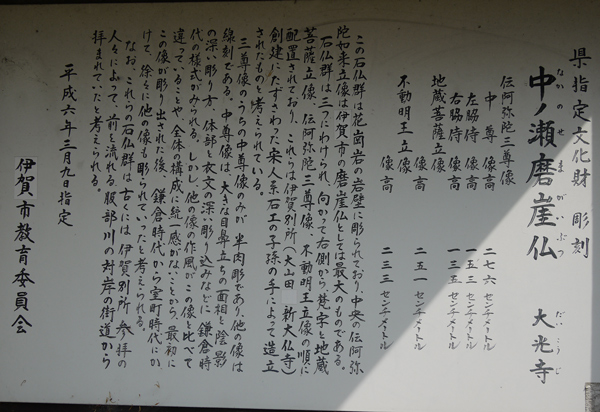 県指定文化財 彫刻
中ノ瀬磨崖仏 大光寺
なかのせまがいぶつ だいこうじ
伝阿弥陀三尊像
中尊像高 二七六センチメートル
左脇侍像高 一五三センチメートル
右脇侍像高 一三五センチメートル
地蔵菩薩立像
像高 二五一センチメートル
不動明王立像
像高 二三三センチメートル
この石仏群は花崗岩の岩壁に彫られており、中央の伝阿弥
陀如来立像は伊賀市の磨崖仏としては最大のものである。
石仏群は三つにわけられ、向かって右側から、梵字と地蔵
菩薩立像、伝阿弥陀三尊像、不動明王立像の順に
配置されており、これらは伊賀別所(大山田 新大仏寺)
創建にたずさわった宋人系石工の子孫の手によって造立
されたものと考えられている。
三尊像のうちの中尊像のみが半肉彫であり、他の像は
線刻である。中尊像は、大きな目鼻立ちの面相と陰影
の深い彫り方、体部と衣文の深い彫り込みなどに鎌倉時
代の様式がみられる。しかし、他の像の作風がこの像と比べて
違っていることや、全体の構成に統一感がないことから、最初に
この像が彫り出された後、鎌倉時代から室町時代にか
けて、徐々に他の像も彫られていったと考えられる。
なお、これらの石仏群は古くは伊賀別所参拝の
人々によって、前を流れる服部川の対岸の街道から
拝まれていたと考えられる。
平成六年三月九日指定
伊賀市教育委員会